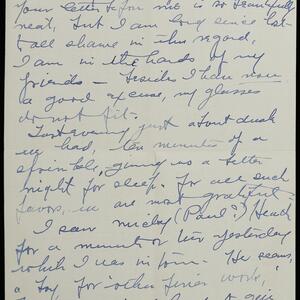 your letter to me is so beautifully
neat, but I am long since lost
to all shame in this regard,
I am in the hands of my
friends — Besides I have now
a good excuse, my glasses
do not fit.
Last evening just about dusk
we had, ten minutes of a
sprinkle, giving us a better
night for sleep. For all such
favors, we are most grateful
I saw (Paul?) Heard
for a minute or two yesterday
while I was in town. He seems,
a for other work,